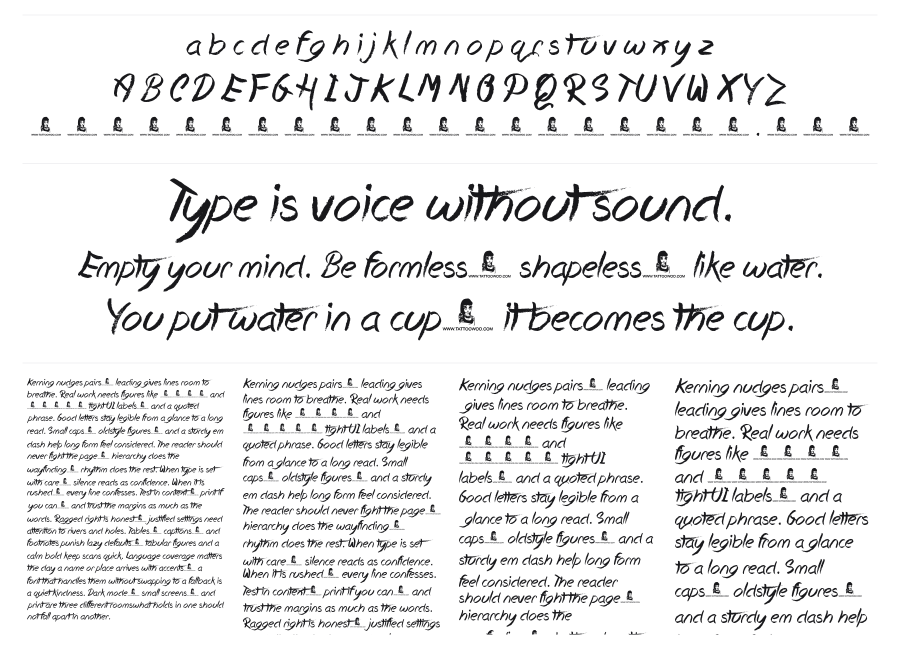 a b c d e f g h i j k l m n o p q r s t u v w x y z
A B C D E F G H I J K L M N O P Q R S T U V W X Y Z
.
Type is voice without sound.
Empty your mind. Be formless WWW.TATTOOWOO.COM shapeless WWW.TATTOOWOO.COM like water.
You put water in a cup WWW.TATTOOWOO.COM it becomes the cup.
Kerning nudges pairs leading gives lines room to
breathe. Real work needs figures like and
tight UI labels and a quoted
phrase. Good letters stay legible from a glance to a long
read. Small caps oldstyle figures and a sturdy em
dash help long form feel considered. The reader should
never fight the page hierarchy does the
wayfinding rhythm does the rest. When type is set
with care silence reads as confidence. When it is
rushed every line confesses. Test in content print if
you can and trust the margins as much as the
words. Ragged right is honest justified settings need
attention to rivers and holes. Tables captions and
footnotes punish lazy defaults tabular figures and a
calm bold keep scans quick. Language coverage matters
the day a name or place arrives with accents a
font that handles them without swapping to a fallback is
a quiet kindness. Dark mode small screens and
print are three different rooms what holds in one should
not fall apart in another.
Kerning nudges pairs leading gives
lines room to breathe. Real work needs
figures like and
tight UI labels and a
quoted phrase. Good letters stay legible
from a glance to a long read. Small
caps oldstyle figures and a sturdy
em dash help long form feel considered.
The reader should never fight the page
hierarchy does the wayfinding
rhythm does the rest. When type is set
with care silence reads as confidence.
When it is rushed every line confesses.
Test in content print if you can and
trust the margins as much as the words.
Ragged right is honest justified settings
Kerning nudges pairs leading
gives lines room to breathe.
Real work needs figures like
and
tight UI
labels and a quoted phrase.
Good letters stay legible from a
glance to a long read. Small
caps oldstyle figures and a
sturdy em dash help long form
feel considered. The reader
should never fight the page
hierarchy does the
Kerning nudges pairs
leading gives lines room to
breathe. Real work needs
figures like
and
tight UI labels and a
quoted phrase. Good letters
stay legible from a glance
to a long read. Small
caps oldstyle figures
and a sturdy em dash help